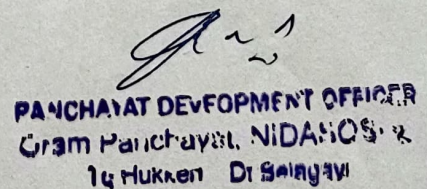 PANCHAYAT DEVEOPMENT OFFICER
Gram Panchayat, NIDASOSI
Tq Hukkeri Dt Belagavi